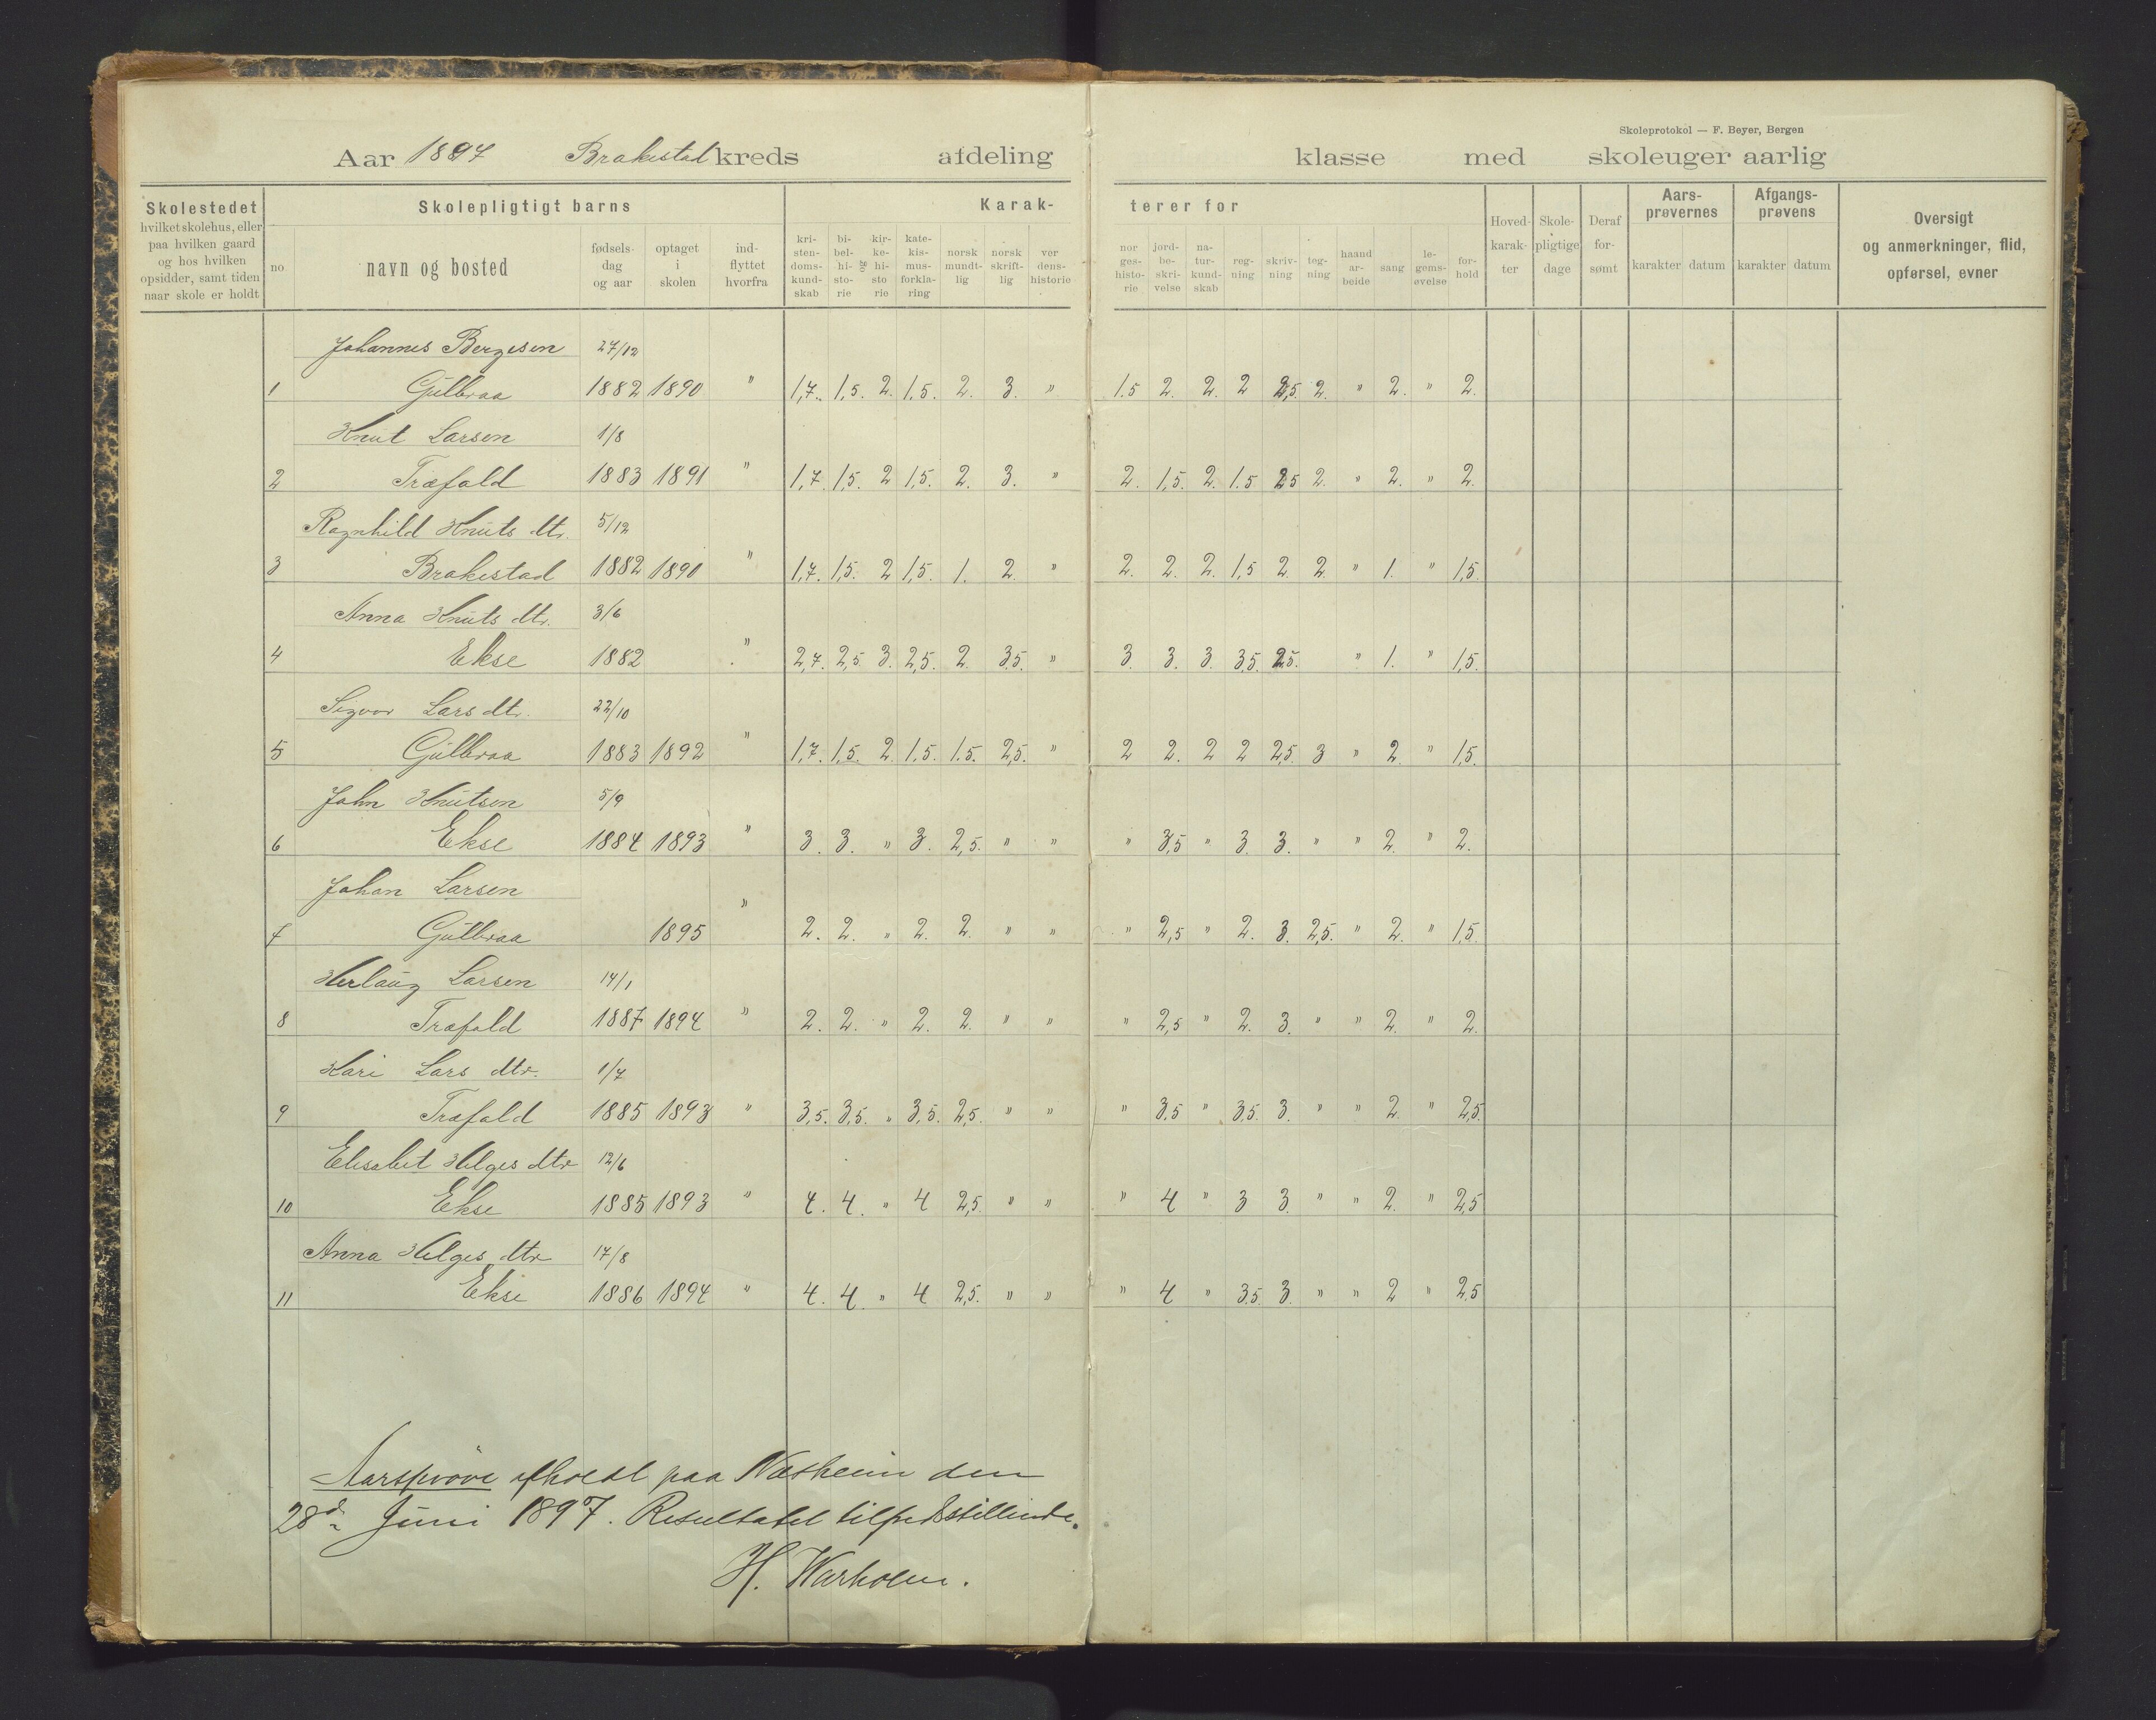 Skoleprotokol — F. Beyer, Bergen
Aar 1897 Brakestad kreds afdeling klasse med skoleuger aarlig
Skolestedet
hvilket skolehus, eller
paa hvilken gaard
og hos hvilken
opsidder, samt tiden
naar skole er holdt
Skolepligtigt barns
no
navn og bosted
fødsels-
dag
og aar
optaget
i
skolen
ind-
flyttet
hvorfra
Karak-
kri-
sten-
doms-
kund-
skab
bi-
bel-
hi-
sto-
rie
kir-
ke-
hi-
sto
rie
kate-
kis-
mus-
forkla-
ring
norsk
mundt-
lig
norsk
skrift-
lig
ver
dens-
historie
terer for
nor
ges-
histo-
rie
jord-
be-
skri-
velse
na-
tur-
kund-
skab
reg-
ning
skriv-
ning
teg-
ning
haand
ar-
beide
sang
le-
gems-
øvelse
for-
hold
Hoved-
karak-
ter
Skole-
pligtige
dage
Deraf
for-
sømt
Aars-
prøvernes
karakter datum
Afgangs-
prøvens
karakter datum
Oversigt
og anmerkninger, flid,
opførsel, evner
Johannes Bergesen 27/12
1 Gülbraa 1882 1890 " 1,7. 1,5. 2. 1,5. 2. 3. " 1.5 2. 2. 2 2,5. 2. " 2. " 2.
Knut Larsen 1/8
2 Træfald 1883 1891 " 1,7. 1,5. 2 1,5. 2. 3. " 2. 1,5. 2. 1.5 25 2. " 2. " 2.
Ragnhild Knüts dtr. 5/12
3 Brakestad 1882 1890 " 1,7. 1,5. 2 1,5. 1. 2. " 2. 2. 2. 1,5 2. 2. " 1. " 1,5.
Anna Knüts dtr. 3/6
4 Ekse 1882 " 2,7. 2,5 3. 2,5. 2. 3.5. " 3. 3. 3. 3,5. 2.5. " 1. " 1,5.
Sigvor Lars dtr. 22/10
5 Gülbraa 1883 1892 " 1,7. 1,5. 2. 1.5. 1.5. 2,5. " 2 2. 2 2 2,5. 3 " 2. " 1,5.
John Knütsen 5/9
6 Ekse 1884 1893 " 3. 3. " 3. 2,5. " " " 3,5 " 3. 3. " " 2. " 2.
Johan Larsen
7 Gülbraa 1895 " 2. 2. " 2. 2. " " " 2,5 " 2. 3. 2,5. " 2. " 1,5.
Herlaüg Larsen 14/1
8 Træfald 1887 1894 " 2. 2. " 2. 2. " " " 2,5 " 2. 3. " " 2. " 2.
Kari Lars dtr. 1/7
9 Træfald 1885 1893 " 3,5. 3,5. " 3,5. 2,5. " " " 3,5 " 3,5. 3. " " 2. " 2,5.
Elisabet Helges dtr 12/6
10 Ekse 1885 1893 " 4. 4. " 4 2,5. " " " 4 " 3 3. " " 2. " 2,5
Anna Helges dtr 17/8
11 Ekse 1886 1894 " 4. 4. " 4 2,5. " " " 4 " 3.5. 3. " " 2 " 2.5
Aarsprøve afholdt paa Næsheim den
28de Juni 1897. Resultatet tilfredsstillende.
H. Warholm.